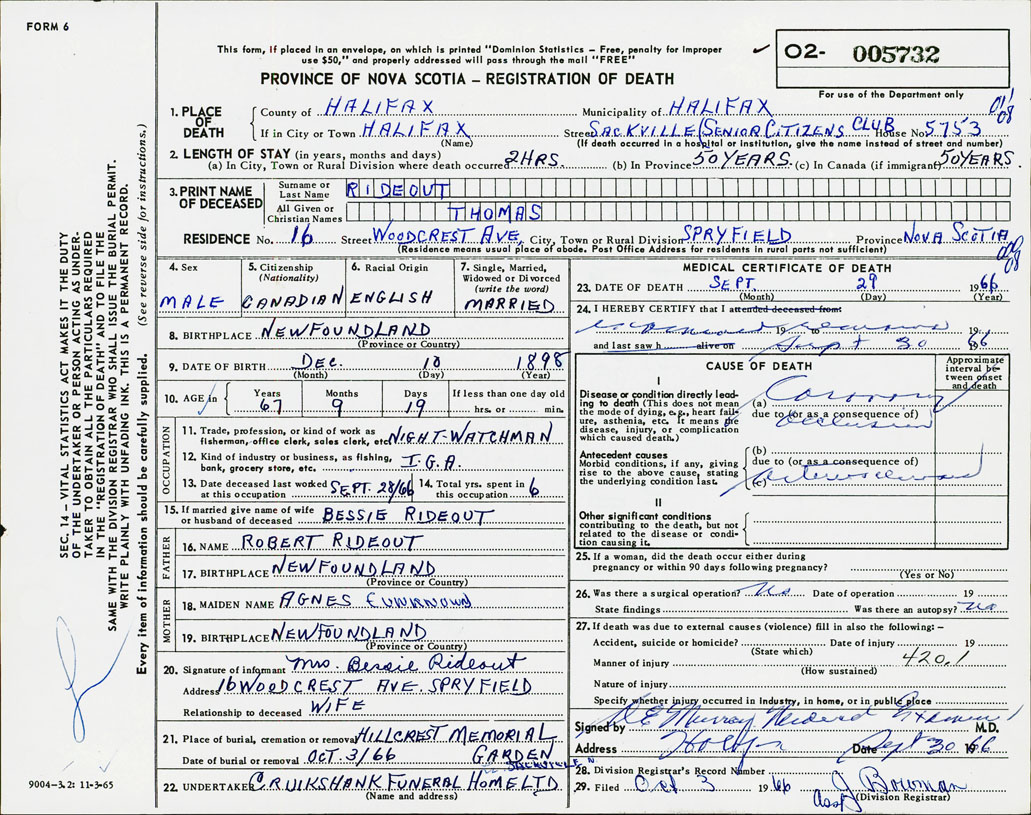 FORM 6
This form, if placed in an envelope, on which is printed "Dominion Statistics – Free, penalty for improper
use $50," and properly addressed will pass through the mail "FREE"
PROVINCE OF NOVA SCOTIA – REGISTRATION OF DEATH
✓ O2- 005732
For use of the Department only
SEC. 14 – VITAL STATISTICS ACT MAKES IT THE DUTY
OF THE UNDERTAKER OR PERSON ACTING AS UNDER-
TAKER TO OBTAIN ALL THE PARTICULARS REQUIRED
IN THE "REGISTRATION OF DEATH" AND TO FILE THE
SAME WITH THE DIVISION REGISTRAR WHO SHALL ISSUE THE BURIAL PERMIT.
WRITE PLAINLY WITH UNFADING INK. THIS IS A PERMANENT RECORD.
Every item of information should be carefully supplied. (See reverse side for instructions.)
1. PLACE OF DEATH
County of HALIFAX Municipality of HALIFAX
If in City or Town HALIFAX Street SACKVILLE (SENIOR CITIZENS CLUB House No. 5753
(Name) (If death occurred in a hospital or institution, give the name instead of street and number)
2. LENGTH OF STAY (in years, months and days)
(a) In City, Town or Rural Division where death occurred 2 HRS. (b) In Province 50 YEARS (c) In Canada (if immigrant) 50 YEARS
3. PRINT NAME OF DECEASED
Surname or Last Name RIDEOUT
All Given or Christian Names THOMAS
RESIDENCE No. 16 Street WOODCREST AVE, City, Town or Rural Division SPRYFIELD Province NOVA SCOTIA
(Residence means usual place of abode. Post Office Address for residents in rural parts not sufficient)
4. Sex
MALE
5. Citizenship
(Nationality)
CANADIAN
6. Racial Origin
ENGLISH
7. Single, Married,
Widowed or Divorced
(write the word)
MARRIED
8. BIRTHPLACE NEWFOUNDLAND
(Province or Country)
9. DATE OF BIRTH DEC. 10 1898
(Month) (Day) (Year)
10. AGE in Years 67 Months 9 Days 19 If less than one day old
hrs. or min.
OCCUPATION
11. Trade, profession, or kind of work as
fisherman, office clerk, sales clerk, etc. NIGHT-WATCHMAN
12. Kind of industry or business, as fishing,
bank, grocery store, etc. I.G.A.
13. Date deceased last worked
at this occupation SEPT. 28/66
14. Total yrs. spent in
this occupation 6
15. If married give name of wife
or husband of deceased BESSIE RIDEOUT
FATHER
16. NAME ROBERT RIDEOUT
17. BIRTHPLACE NEWFOUNDLAND
(Province or Country)
MOTHER
18. MAIDEN NAME AGNES (UNKNOWN
19. BIRTHPLACE NEWFOUNDLAND
(Province or Country)
20. Signature of informant Mrs. Bessie Rideout
Address 16 WOODCREST AVE. SPRYFIELD
Relationship to deceased WIFE
21. Place of burial, cremation or removal HILLCREST MEMORIAL
Date of burial or removal OCT. 3/66 GARDEN
SACKVILLE, N
22. UNDERTAKER CRUIKSHANK FUNERAL HOME LTD
(Name and address)
9004–3.2: 11-3-65
MEDICAL CERTIFICATE OF DEATH
23. DATE OF DEATH SEPT. 29 1966
(Month) (Day) (Year)
24. I HEREBY CERTIFY that I attended deceased from
19 to 19
and last saw h alive on Sept 30 1966
CAUSE OF DEATH
Approximate interval between onset and death
I
Disease or condition directly lead-
ing to death (This does not mean
the mode of dying, e.g., heart fail-
ure, asthenia, etc. It means the
disease, injury, or complication
which caused death.)
(a) Coronary
due to (or as a consequence of)
Occlusion
Antecedent causes
Morbid conditions, if any, giving
rise to the above cause, stating
the underlying condition last.
(b)
due to (or as a consequence of)
(c)
II
Other significant conditions
contributing to the death, but not
related to the disease or condi-
tion causing it.
25. If a woman, did the death occur either during
pregnancy or within 90 days following pregnancy?
(Yes or No)
26. Was there a surgical operation? No Date of operation 19
State findings Was there an autopsy? No
27. If death was due to external causes (violence) fill in also the following: –
Accident, suicide or homicide? Date of injury 19
(State which)
Manner of injury 420.1
(How sustained)
Nature of injury
Specify whether injury occurred in Industry, in home, or in public place
Signed by Murray Medical Examiner M.D.
Address Date Sept 30 1966
28. Division Registrar's Record Number
29. Filed Oct 3 1966 J Bowman
Asst (Division Registrar)